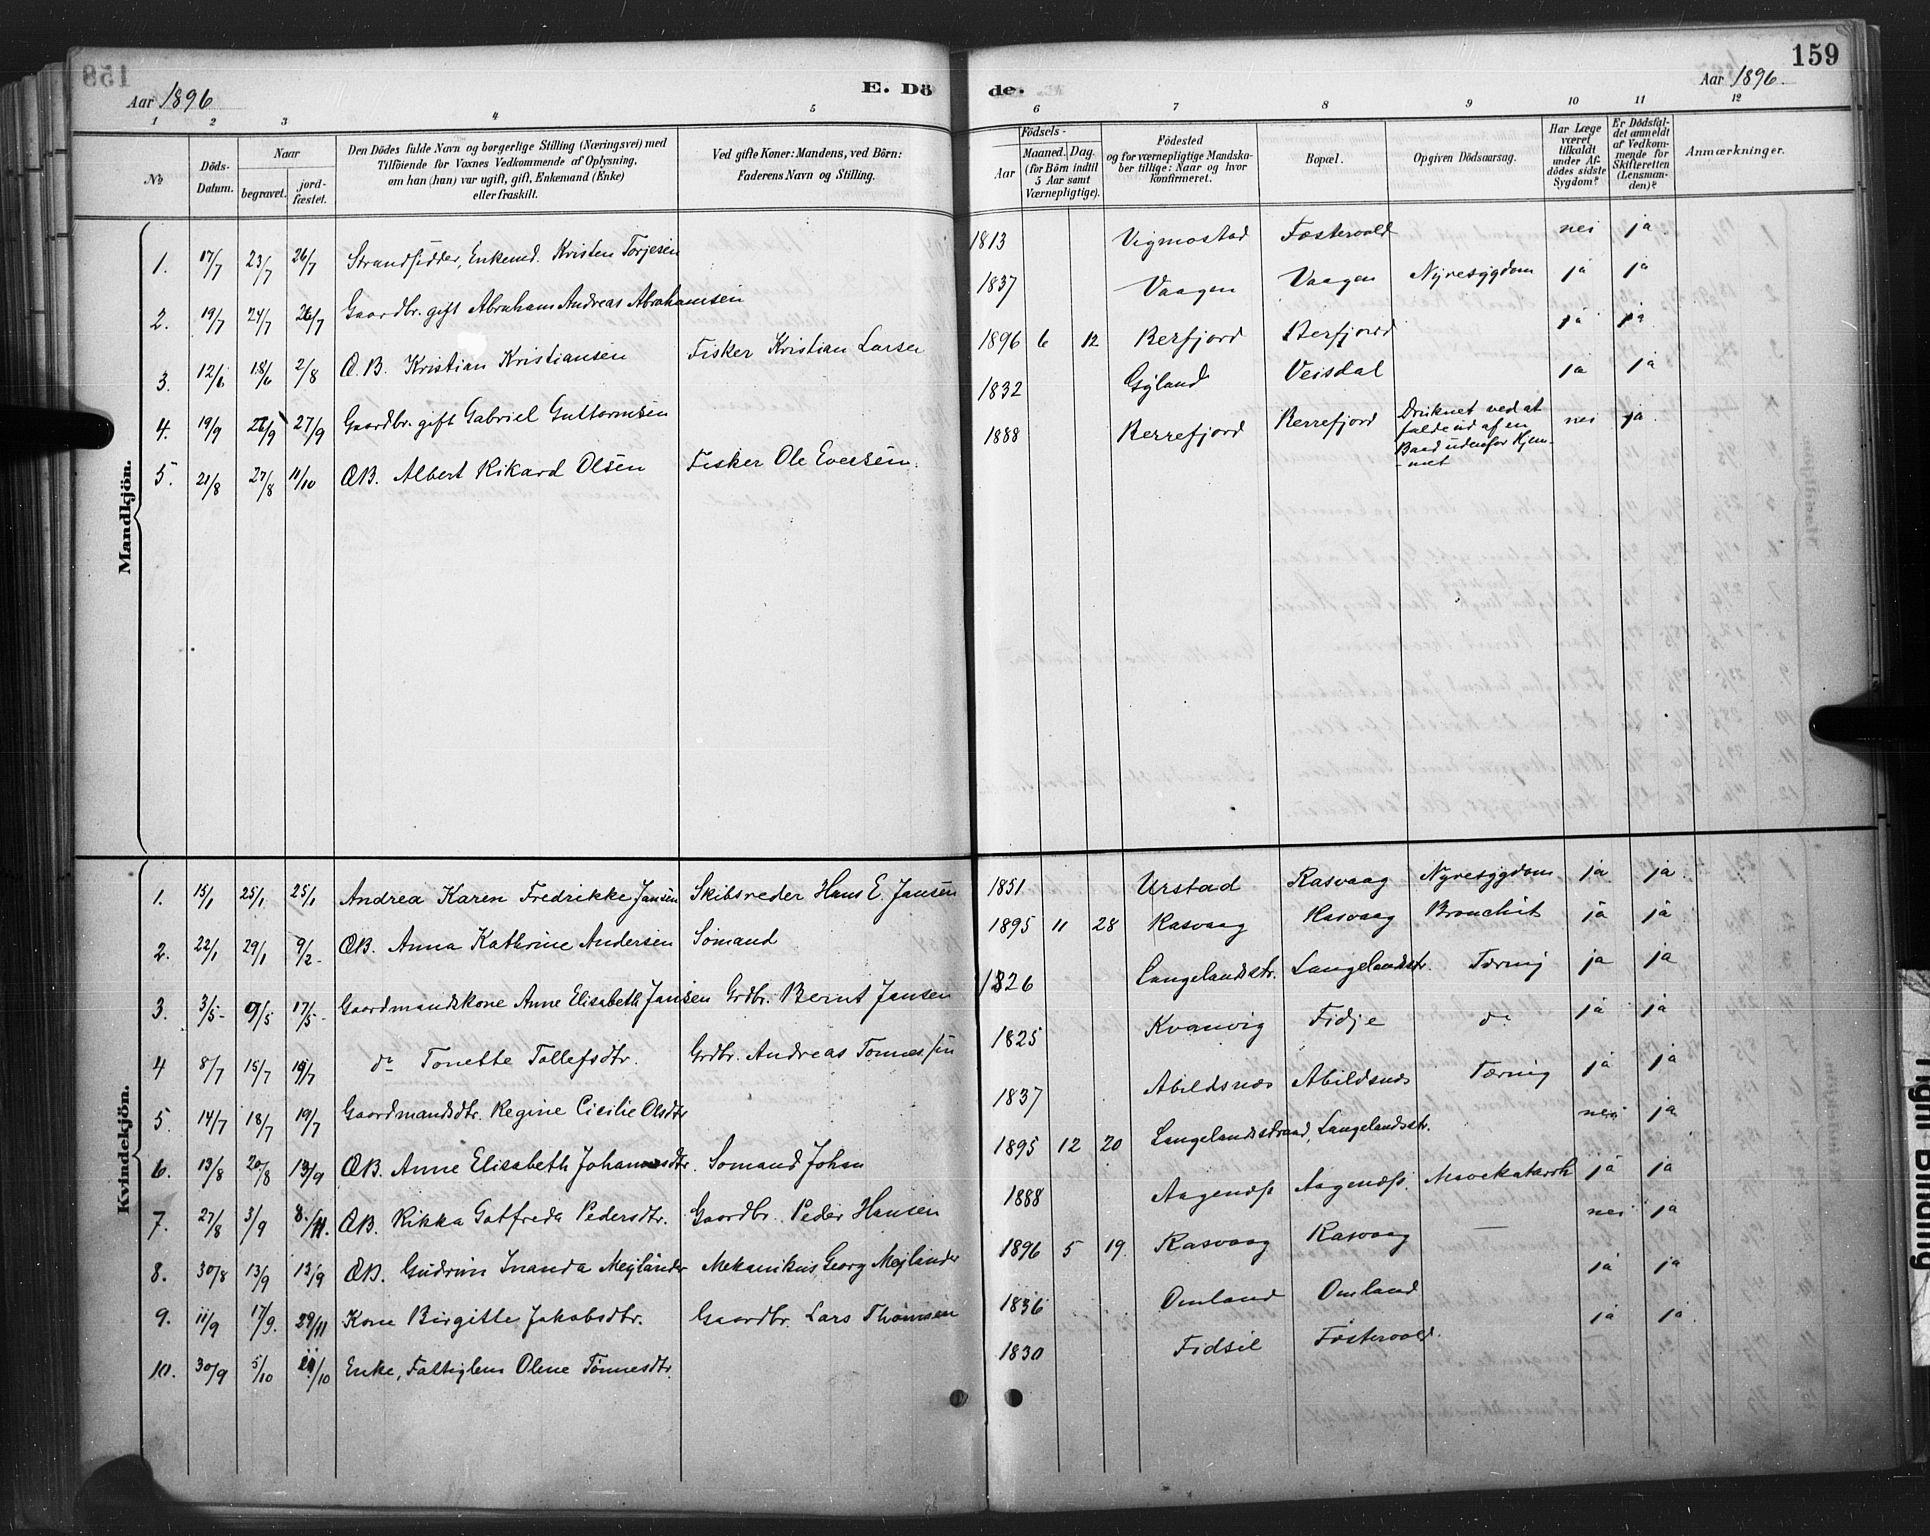 159
Aar 1896
E. Dö
de.
Aar 1896.
1 2 3 4 5 6 7 8 9 10 11 12
No
Döds-Datum.
Naar
begravet.
jordfæstet.
Den Dödes fulde Navn og borgerlige Stilling (Næringsvei) med
Tilföiende for Voxnes Vedkommende af Oplysning,
om han (hun) var ugift, gift, Enkemand (Enke)
eller fraskilt.
Ved gifte Koner: Mandens, ved Börn:
Faderens Navn og Stilling.
Födsels-
Aar
Maaned. Dag.
(for Börn indtil
5 Aar samt
Værnepligtige).
Födested
og for værnepligtige Mandskaber tillige: Naar og hvor
konfirmeret.
Bopæl.
Opgiven Dödsaarsag.
Har Læge
været
tilkaldt
under Afdödes sidste
Sygdom?
Er Dödsfaldet anmeldt
af Vedkommende for
Skifteretten
(Lensmanden)?
Anmærkninger.
Mandkjön.
1. 17/7 23/7 26/7 Strandsidder, Enkemd. Kristen Torjesen 1813 Vigmostad Fæstervold nei ja
2. 19/7 24/7 26/7 Gaardbr. gift Abraham Andreas Abrahamsen 1837 Vaagen Vaagen Nyresygdom ja ja
3. 12/6 18/6 2/8 Æ.B. Kristian Kristiansen Fisker Kristian Larsen 1896 6 12 Berfjord Berfjord ja ja
4. 19/9 26/9 27/9 Gaardbr. gift Gabriel Guttormsen 1832 Gyland Veisdal ja ja
5. 21/8 27/8 11/10 ÆB. Albert Rikard Olsen Fisker Ole Evensen. 1888 Berrefjord Berrefjord Druknet ved at
falde ud af en
Baad udenfor Hjemmet nei ja.
Kvindekjön.
1. 15/1 25/1 25/1 Andrea Karen Fredrikke Jansen Skibsreder Hans E. Jansen 1851 Urstad Rasvaag Nyresygdom ja ja
2. 22/1 29/1 9/2 ÆB. Anna Kathrine Andersen Sömand 1895 11 28 Rasvaag Rasvaag Bronchit ja ja
3. 3/5 9/5 17/5 Gaardmandskone Anne Elisabeth Jansen Grdbr. Bernt Jansen 1826 Langelandsstr. Langelandsstr. Tæring ja ja
4 8/7 15/7 19/7 do Tonette Tollefsdtr. Grdbr. Andreas Tönnessen 1825 Kvanvig Fidje do ja ja
5. 14/7 18/7 19/7 Gaardmandsdtr. Regine Cicilie Olsdtr 1837 Abildsnæs Abildsnæs Tæring ja ja
6. 13/8 20/8 13/9 ÆB. Anne Elisabeth Johannsdtr. Sömand Johan 1895 12 20 Langelandsstrand, Langelandsstr. nei ja
7. 27/8 3/9 8/11. ÆB. Rikka Gotfreda Pedersdtr. Gaardbr. Peder Hansen 1888 Aagenæs Aagenæs. Mavekatarrh ja ja
8. 30/8 13/9 13/9 ÆB. Gudrun Inanda Mejlænder Mekanikus Georg Mejlænder 1896 5 19. Rasvaag Rasvaag — nei ja
9. 11/9 17/9. 29/11 Kone Birgitte Jakobsdtr. Gaardbr. Lars Thomsen 1836 Omland Omland ja ja
10. 30/9 5/10 /10 Enke, Fattiglem Olene Tönnesdtr. 1830 Fidsel Fæstervold. ja ja
Tight Binding